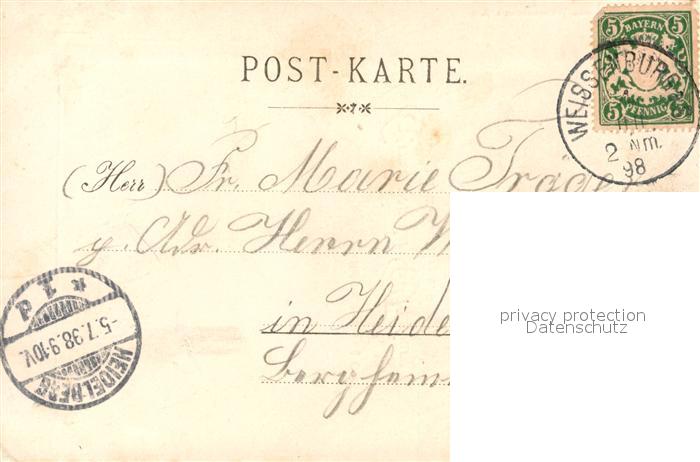 POST-KARTE.
5 BAYERN 5
5 PFENNIG 5
WEISSENBURG
2 Nm.
98
(Herr) Fr. Marie Träger
p. Adr. Herrn
in Heide
Bergheim
HEIDELBERG
-5.7.98.9-10V.
privacy protection
Datenschutz